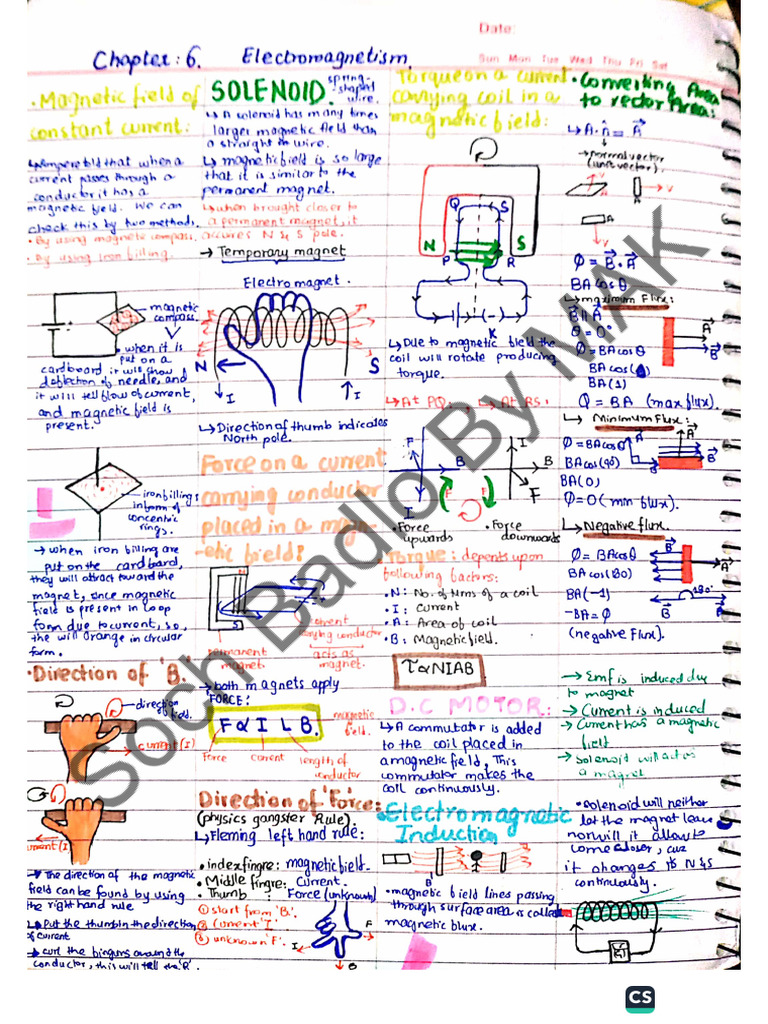 Date:
Sun Mon Tue Wed Thu Fri Sat
Chapter: 6. Electromagnetism.
• Magnetic field of
constant current:
↳ Ampere told that when a
current passes through a
conductor it has a
magnetic field. We can
check this by two methods.
• By using magnetic compass.
• By using iron filling.
magnetic
compass.
when it is
put on a
cardboard it will show
deflection of needle, and
it will tell flow of current,
and magnetic field is
present.
iron fillings
in form of
concentric
rings.
→ when iron filling are
put on the card board,
they will attract toward the
magnet, since magnetic
field is present in loop
form due to current, so,
the will arrange in circular
form.
• Direction of 'B.'
direction
of field.
current (I)
current (I)
→ The direction of the magnetic
field can be found by using
the right hand rule
↳ Put the thumb in the direction
of current
→ curl the fingers around the
conductor, this will tell the 'B'.
SOLENOID.
spring-
shaped
wire.
↳ A solenoid has many times
larger magnetic field than
a straight wire.
↳ magnetic field is so large
that it is similar to the
permanent magnet.
↳ when brought closer to
a permanent magnet, it
N & S pole.
→ Temporary magnet
Electro magnet.
N S
I I
↳ Direction of thumb indicates
North pole.
Force on a current
carrying conductor
placed in a magn-
etic field:
N
S
current
carrying conductor
permanent
magnet.
acts as
magnet.
→ both magnets apply
FORCE:
F ∝ I L B.
magnetic
field.
Force current length of
conductor
Direction of 'Force:'
(physics gangster Rule).
↳ Fleming left hand rule:
• index fingre: magnetic field.
• Middle fingre: Current.
• Thumb : Force (unknown)
① start from 'B'.
② Current 'I'
③ unknown 'F'.
F
I
B
Torque on a current
carrying coil in a
magnetic field:
Q S
N S
P R
K
↳ Due to magnetic field the
coil will rotate producing
torque.
↳ At PQ: ↳ At RS:
F B I B
I F F F
• Force
upwards
• Force
downwards
Torque: depends upon
following factors:
• N: No. of turns of a coil
• I : Current
• A : Area of coil
• B : Magnetic field.
τ ∝ NIAB
D.C MOTOR:
↳ A commutator is added
to the coil placed in
a magnetic field, This
commutator makes the
coil continuously.
Electromagnetic
Induction
B
• magnetic field lines passing
through surface area is called
magnetic flux.
• Converting Area
to vector Area:
↳ A · n̂ = A⃗
→ normal vector
(unit vector).
V
V
A
V
Ø = B⃗ · A⃗
BA cos θ
↳ maximum Flux:
B || A⃗
θ = 0°
Ø = BA cos θ
BA cos(0)
BA (1)
Q = BA (max flux).
A⃗
B⃗
↳ Minimum Flux:
Ø = BA cos θ
BA cos (90)
BA (0)
Ø = 0 ( min flux).
A⃗
B⃗
↳ Negative flux.
Ø = BA cos θ
BA cos (180)
BA (-1)
-BA = Ø
(negative Flux).
B⃗
A⃗
180°
B⃗ A⃗
→ Emf is induced due
to magnet
→ Current is induced
→ Current has a magnetic
field
→ solenoid will act as
a magnet
• Solenoid will neither
let the magnet leave
nor will it allow to
come closer,
it changes its N & S
continuously.
G
Soch Badlo By MAK
CS